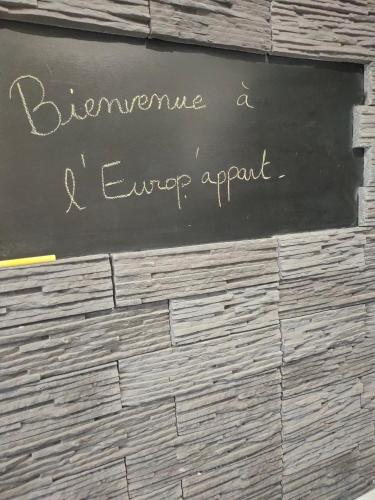 Bienvenue à
l'Europ'appart.